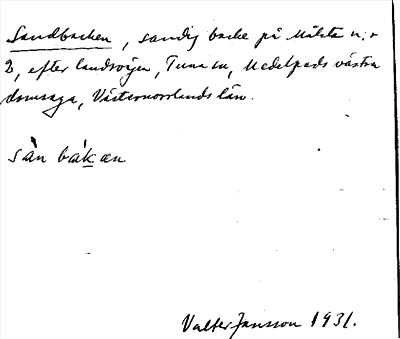 Sandbacken, sandig backe på Målsta n:r
2, efter landsvägen, Tuna sn, Medelpads västra
domsaga, Västernorrlands län.
sàn bák æn
Valter Jansson 1931.